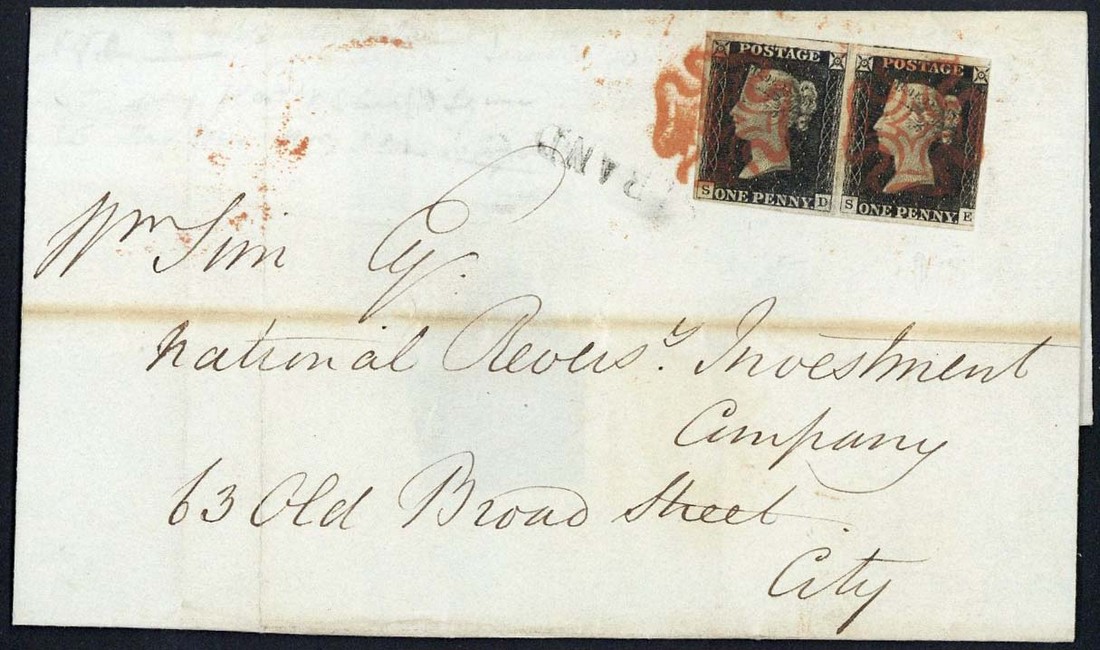 POSTAGE POSTAGE
S ONE PENNY. D S ONE PENNY. E
RAND
Wm Sim Esq.
National Revers.y Investment
Company
63 Old Broad Street
City